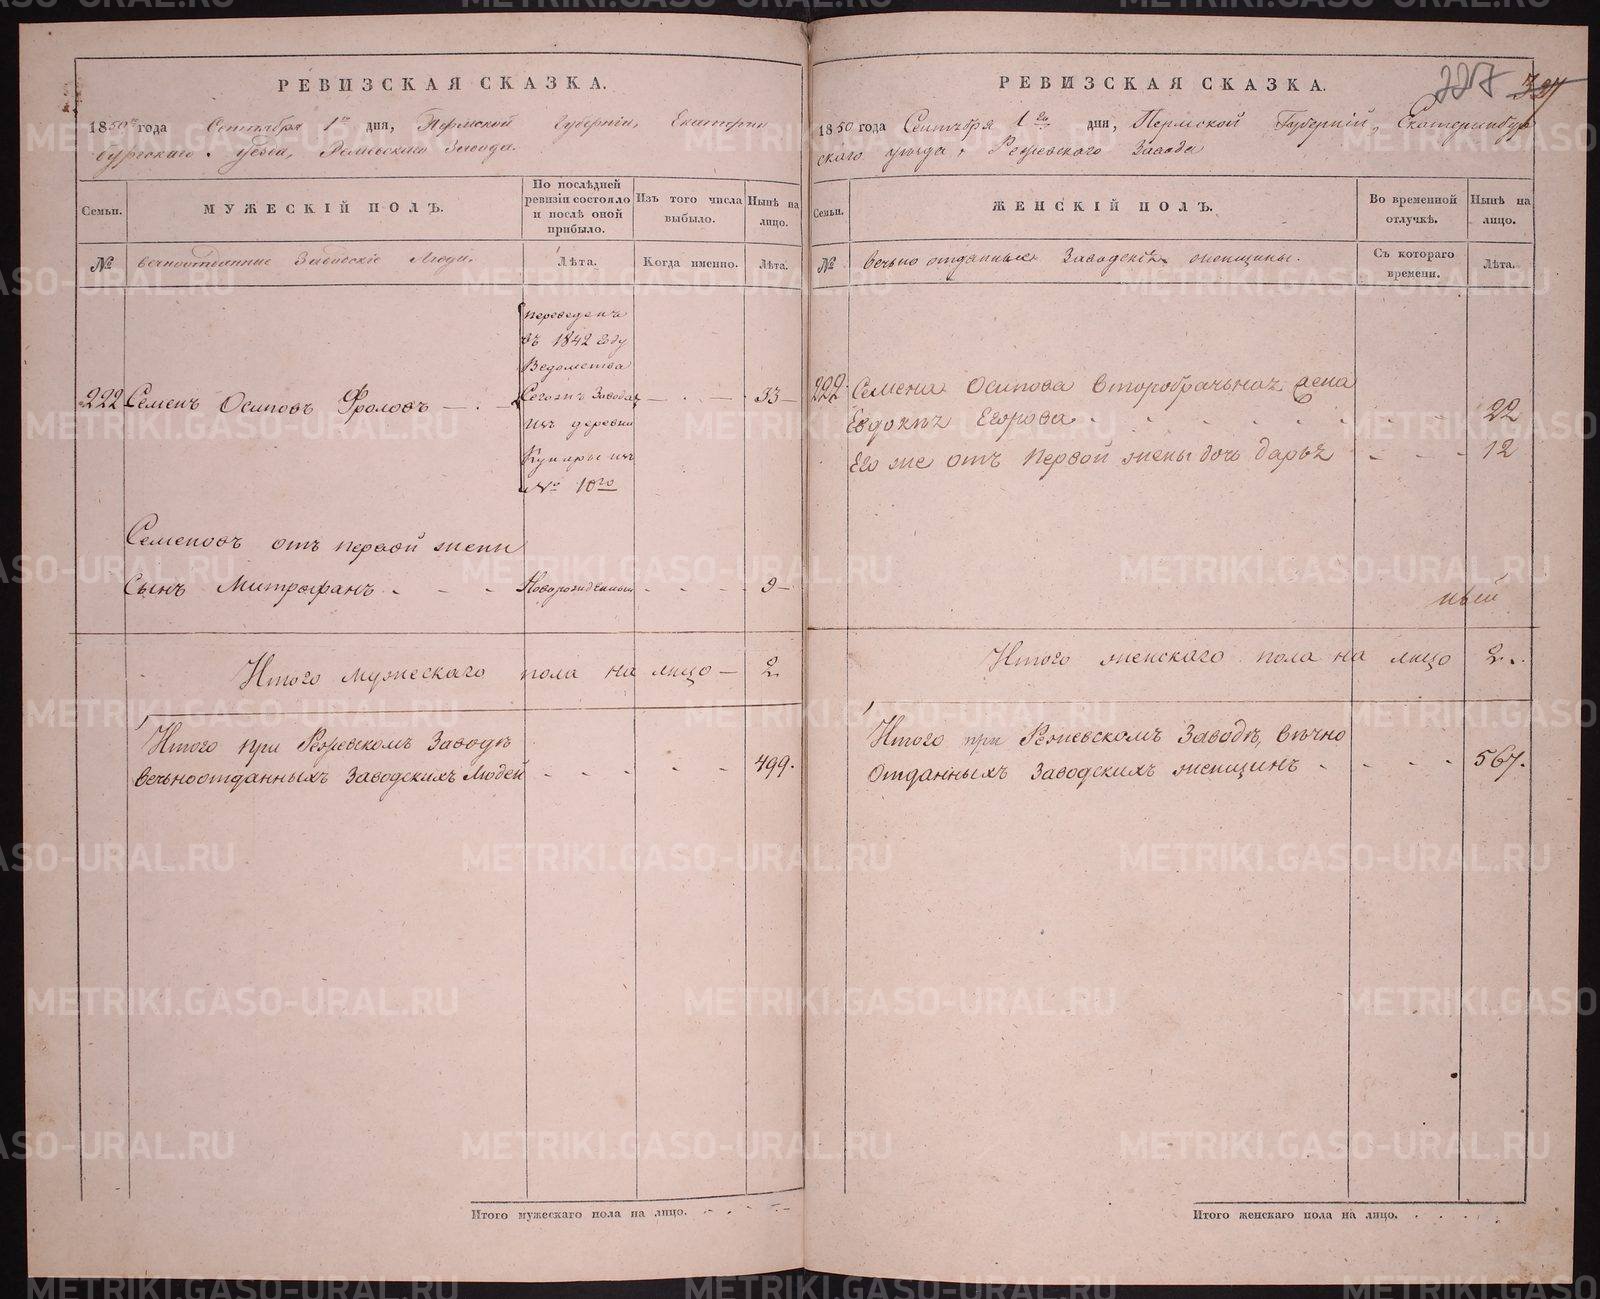 РЕВИЗСКАЯ СКАЗКА.
1850го года Сентября 1го дня, Пермской Губерніи, Екатерин
бургскаго уезда, Режевскаго Завода.
Семьи.
МУЖЕСКІЙ ПОЛЪ.
По послѣдней ревизіи состояло и послѣ оной прибыло.
Изъ того числа выбыло.
Нынѣ на лицо.
№
вечноотданные Заводскіе Люди.
Лѣта.
Когда именно.
Лѣта.
переведенъ
въ 1842 году
Ведомства
222 Семенъ Осиповъ Фроловъ — сегожъ Завода — 33 —
изъ деревни
№ 10го
Семеновъ отъ первой жены
Сынъ Митрофанъ - - - Новорожденный - - - 9 —
Итого мужескаго пола на лицо — 2
Итого при Режевскомъ Заводѣ
вечьноотданныхъ Заводскихъ Людей - - - - - 499.
Итого мужескаго пола на лицо.
227 327
РЕВИЗСКАЯ СКАЗКА.
1850 года Сентября 1го дня, Пермской Губерніи, Екатеринбур
скаго уѣзда, Режевского Завода
Семьи.
ЖЕНСКІЙ ПОЛЪ.
Во временной отлучкѣ.
Нынѣ на лицо.
№
вечьно отданныя Заводскія женщины.
Съ котораго времени.
Лѣта.
222. Семена Осипова второбрачьная жена
Евдокья Егорова - - - - - - 22
Его же отъ первой жены дочь дарья - - - 12
Итого женскаго пола на лицо 2.
Итого при Режевскомъ Заводѣ, вѣчно
отданныхъ Заводскихъ женщинъ - - - - 567.
Итого женскаго пола на лицо.
METRIKI.GASO-URAL.RU